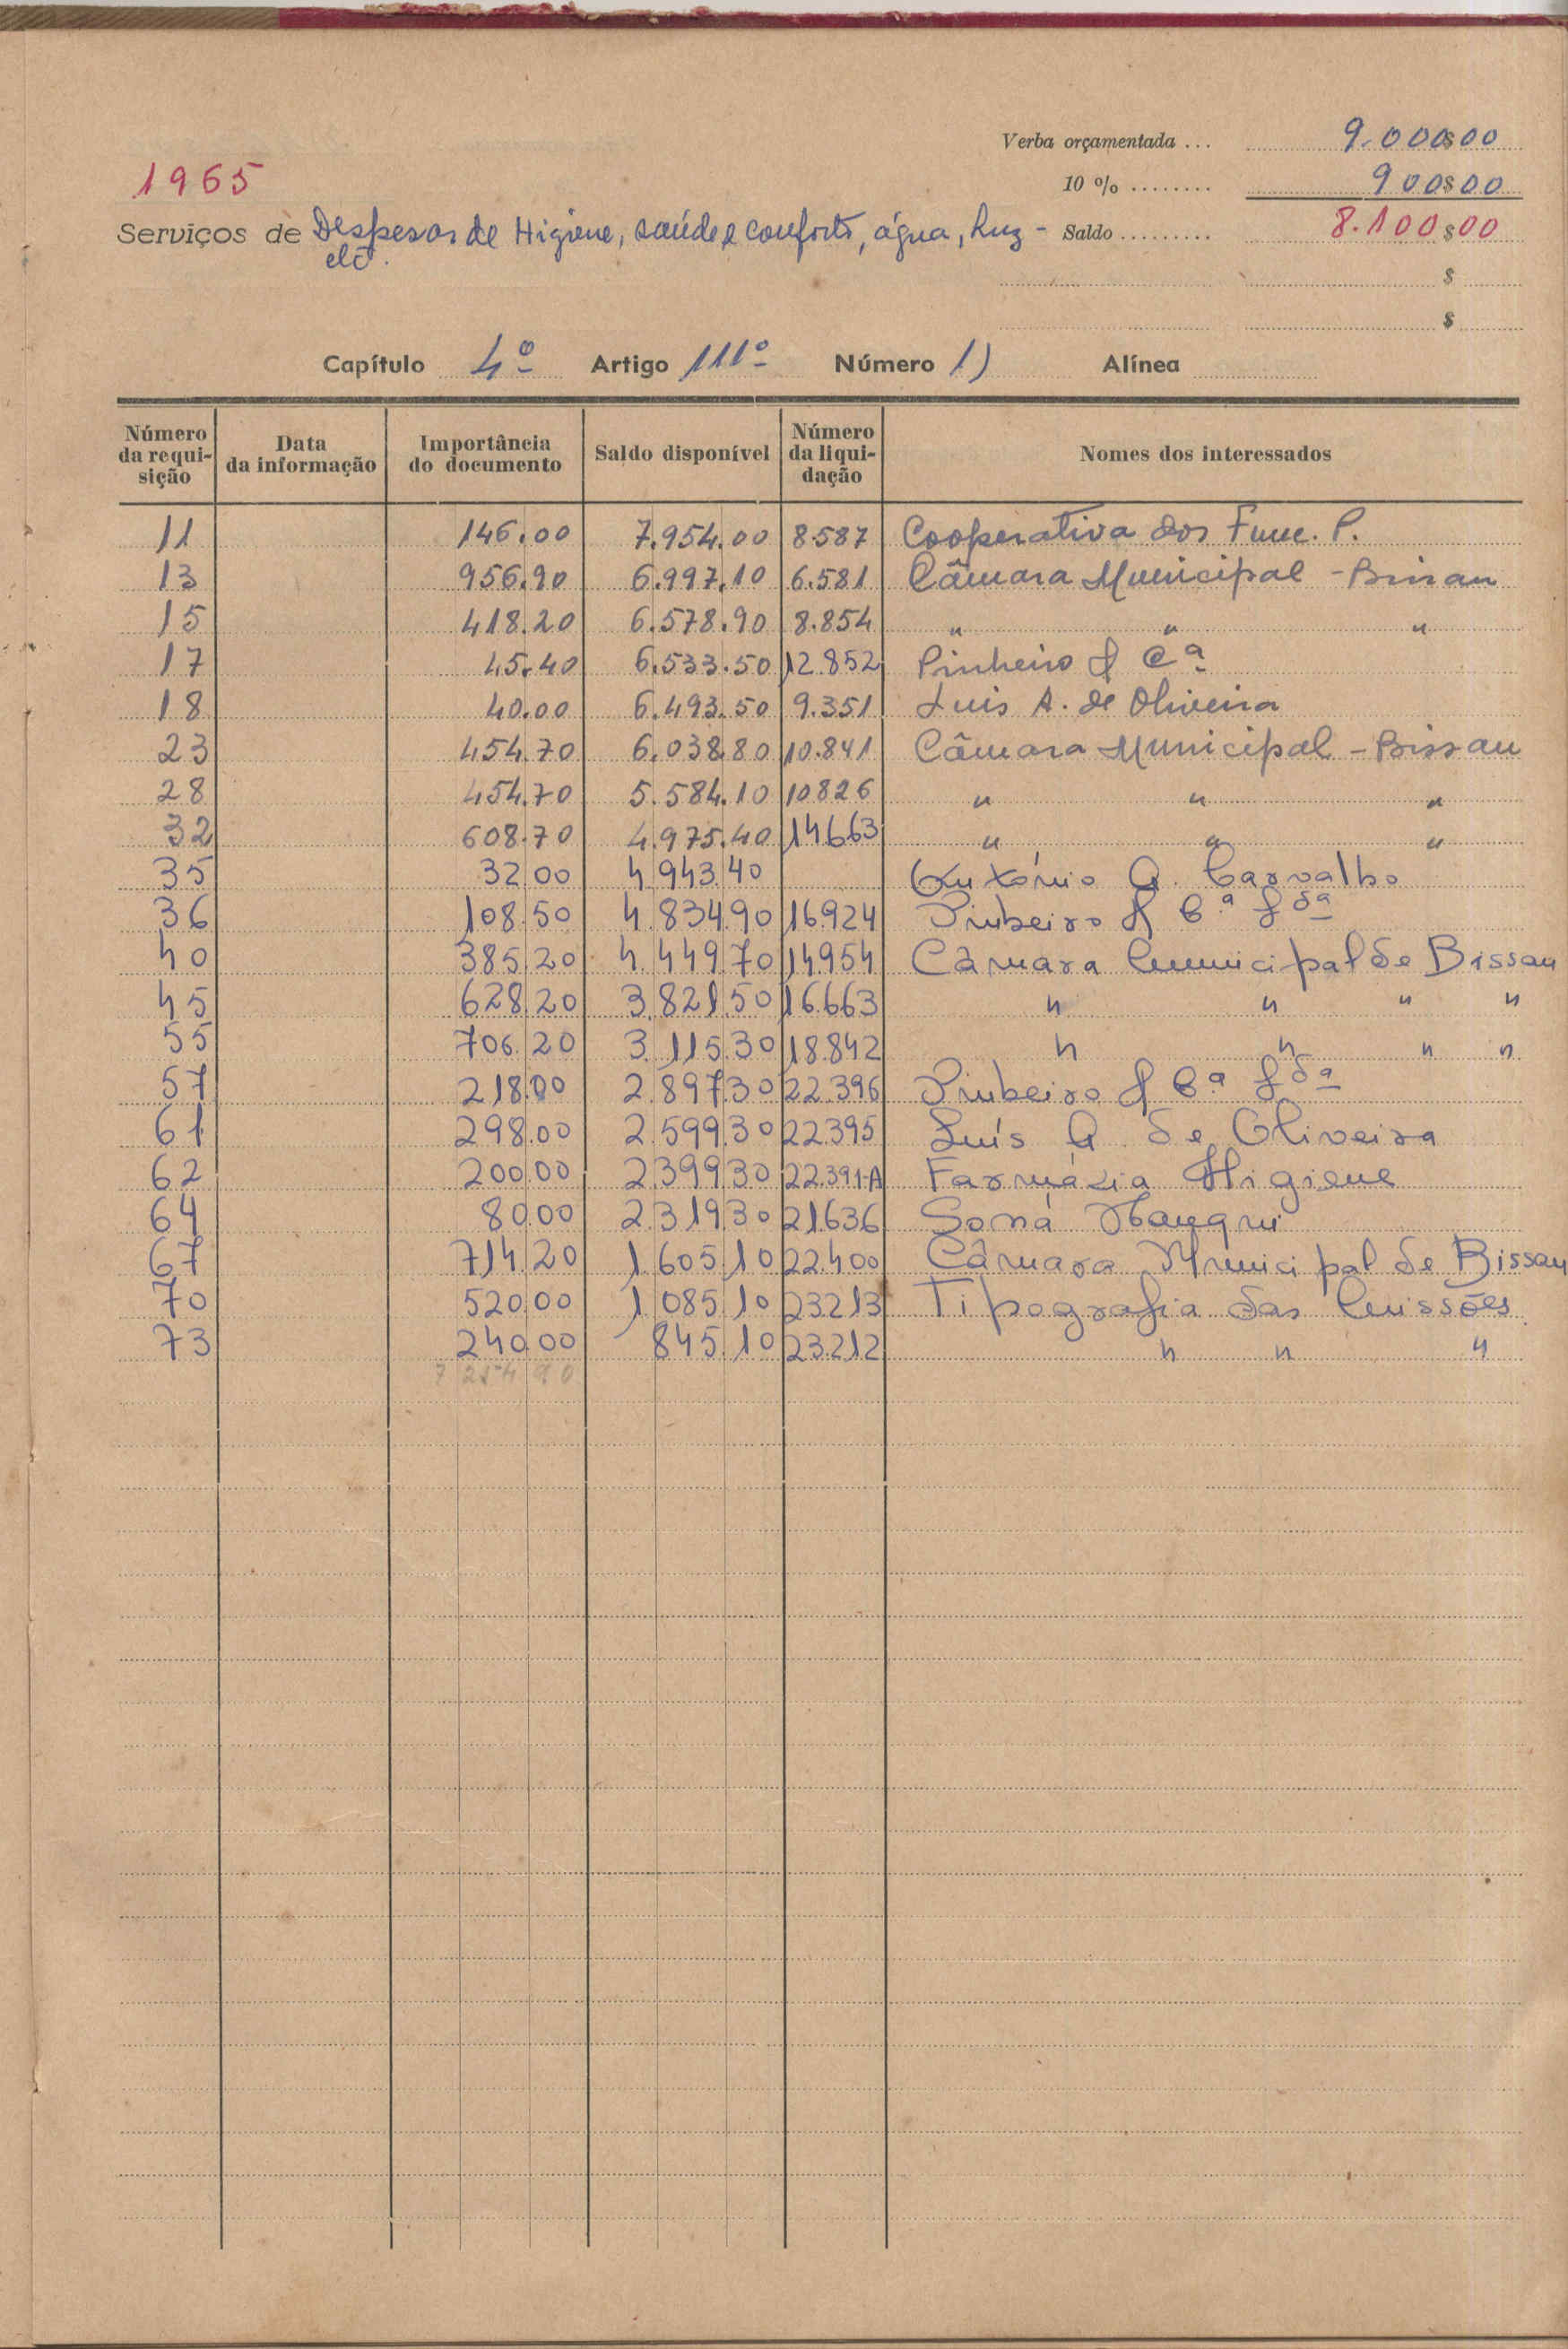 Verba orçamentada ... 9.000$00
1965
10 % ........ 900$00
Serviços de Despesas de Higiene, saúde e conforto, água, Luz - Saldo ......... 8.100$00
etc.
$
$
Capítulo 4º Artigo 111º Número 1) Alínea
Número da requisição Data da informação Importância do documento Saldo disponível Número da liquidação Nomes dos interessados
11 146.00 7.954.00 8587 Cooperativa dos Func. P.
13 956.90 6.997.10 6.581 Câmara Municipal - Bissau
15 418.20 6.578.90 8.854 " " "
17 45.40 6.533.50 12.852 Pinheiro & Cª
18 40.00 6.493.50 9.351 Luis A. de Oliveira
23 454.70 6.038.80 10.841 Câmara Municipal - Bissau
28 454.70 5.584.10 10826 " " "
32 608.70 4.975.40 14663 " " "
35 32 00 4 943 40 António A. Carvalho
36 108.50 4.834.90 16924 Pinheiro & Cª Ldª
40 385 20 4.449.70 14954 Câmara Municipal de Bissau
45 628.20 3.821.50 16.663 " " " "
55 706.20 3.115.30 18.842 " " " "
57 218.00 2.897.30 22.396 Pinheiro & Cª Ldª
61 298.00 2.599.30 22.395 Luís A. de Oliveira
62 200.00 2.399.30 22.391-A Farmácia Higiene
64 80.00 2.319.30 21.636 Soná
67 714.20 1.605.10 22.400 Câmara Municipal de Bissau
70 520.00 1.085.10 23213 Tipografia das Missões
73 240.00 845.10 23.212 " " "
7 254 90